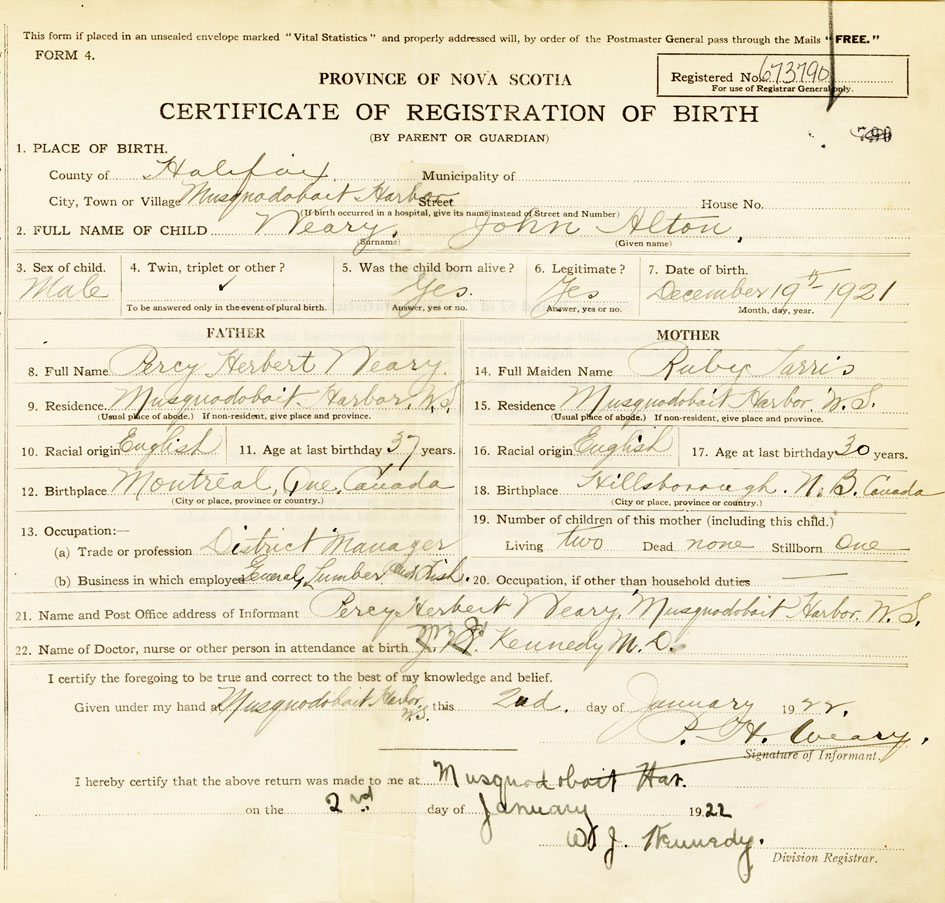 This form if placed in an unsealed envelope marked "Vital Statistics" and properly addressed will, by order of the Postmaster General pass through the Mails "FREE."
FORM 4.
Registered No. 673790
For use of Registrar General only.
PROVINCE OF NOVA SCOTIA
CERTIFICATE OF REGISTRATION OF BIRTH
(BY PARENT OR GUARDIAN)
1. PLACE OF BIRTH.
County of Halifax Municipality of
City, Town or Village Musquodoboit Harbor Street House No.
(If birth occurred in a hospital, give its name instead of Street and Number)
2. FULL NAME OF CHILD Weary, John Alton,
(Surname) (Given name)
3. Sex of child. 4. Twin, triplet or other? 5. Was the child born alive? 6. Legitimate? 7. Date of birth.
Male ✓ Yes. Yes December 19th 1921
To be answered only in the event of plural birth. Answer, yes or no. Answer, yes or no. Month, day, year.
FATHER MOTHER
8. Full Name Percy Herbert Weary. 14. Full Maiden Name Ruby
9. Residence. Musquodoboit Harbor. N.S. 15. Residence Musquodoboit Harbor. N.S.
(Usual place of abode.) If non-resident, give place and province. (Usual place of abode.) If non-resident, give place and province.
10. Racial origin English 11. Age at last birthday 37 years. 16. Racial origin English 17. Age at last birthday 30 years.
12. Birthplace Montreal, Que. Canada 18. Birthplace Hillsborough. N.B. Canada
(City or place, province or country.) (City or place, province or country.)
13. Occupation:— 19. Number of children of this mother (including this child.)
(a) Trade or profession District Manager Living two Dead none Stillborn One
(b) Business in which employed General, Lumber and Fish. 20. Occupation, if other than household duties
21. Name and Post Office address of Informant Percy Herbert Weary, Musquodoboit Harbor. N.S.
22. Name of Doctor, nurse or other person in attendance at birth Kennedy M.D.
I certify the foregoing to be true and correct to the best of my knowledge and belief.
Given under my hand at Musquodoboit Harbor N.S. this 2nd. day of January 1922.
P. H. Weary.
Signature of Informant.
I hereby certify that the above return was made to me at Musquodoboit Har.
on the 2nd day of January 1922
W J. Kennedy.
Division Registrar.